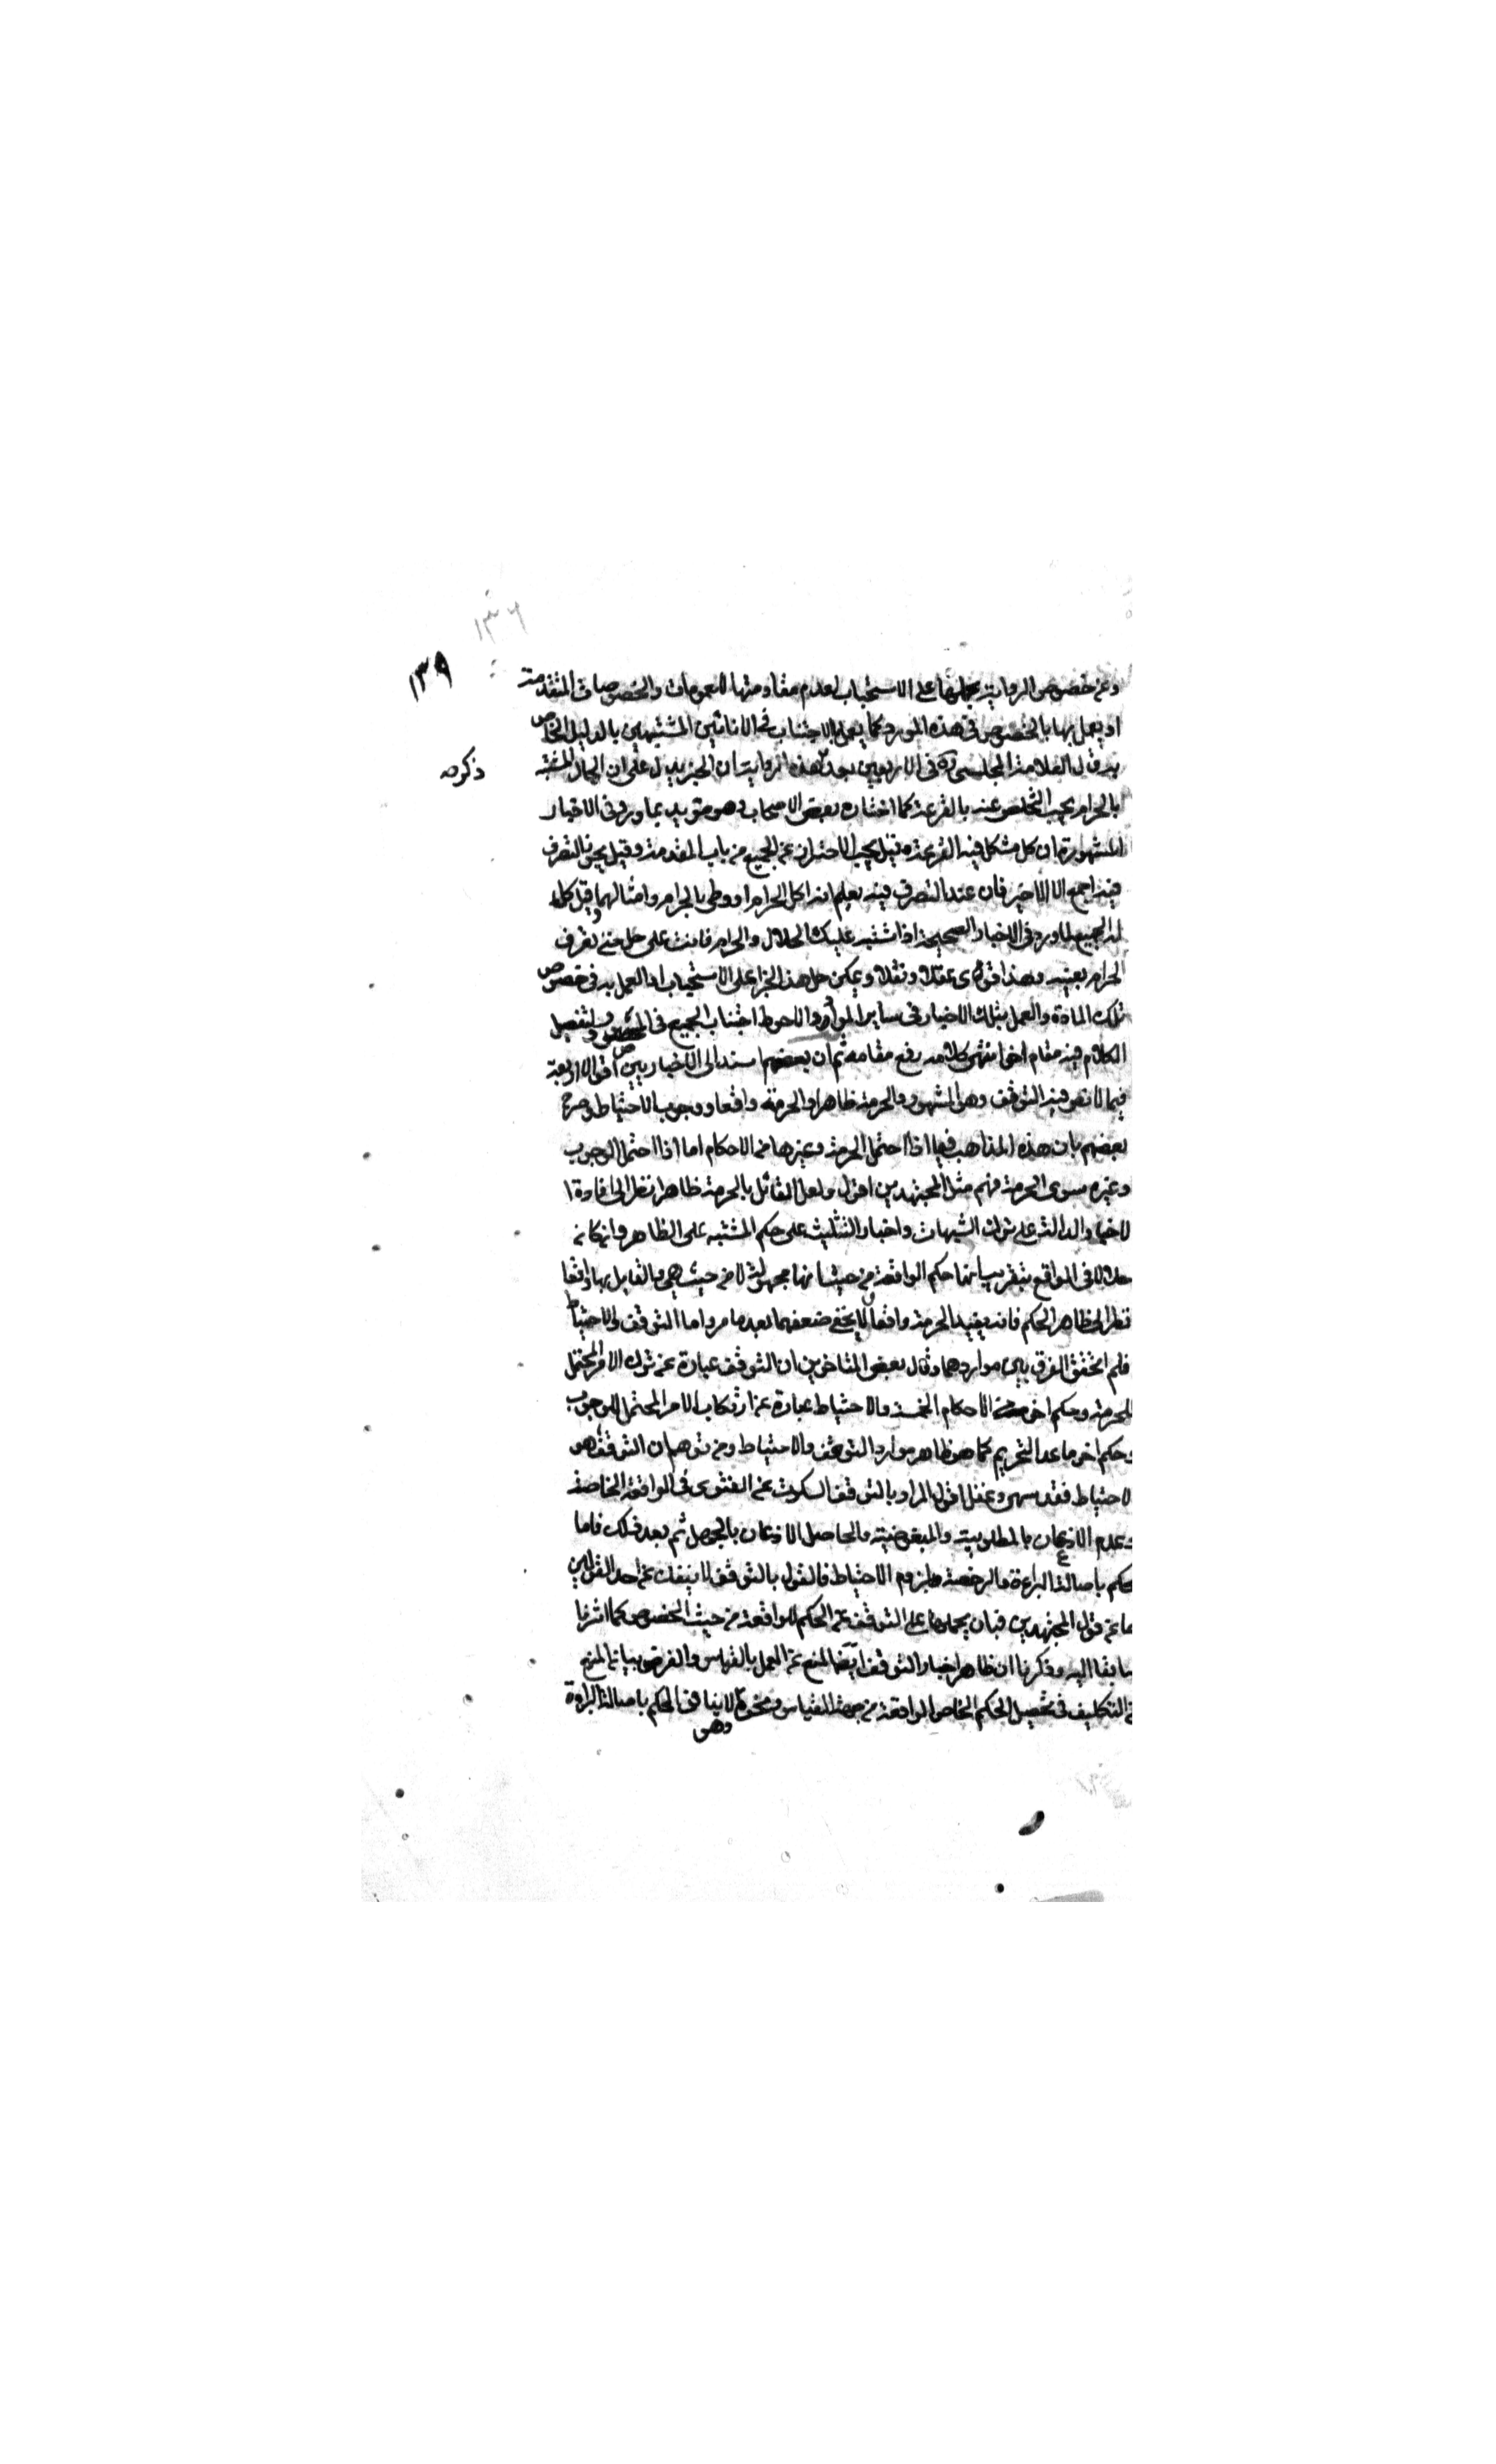 ١٣٦
١٣٩
وعن خصوص الرواية بحملها على الاستحباب لعدم مقاومتها للعمومات والخصوصات المتقدمة
او يعمل بها بالخصوص في هذه المورد كما يعمل بالاجتناب في الانائين المشتبهين بالدليل الخاص
به قال العلامة المجلسي ره في الاربعين بعد هذه الرواية ان الخبر يدل على ان الحمال المشتبه
ذكره صه
بالحرام يجب التخلص عنه بالقرعة كما اختاره بعض الاصحاب وهو مؤيد بما ورد في الاخبار
المشهورة ان كل مشكل فيه القرعة وقيل يجب الاحتراز عن الجميع من باب المقدمة وقيل يجوز التصرف
فيه اجمع الا الاخير فان عند التصرف فيه يعلم انه اكل الحرام او وطي بالحرام وامثالهما وقيل كله
له الجميع لما ورد في الاخبار الصحيحة اذا اشتبه عليك الحلال والحرام فانت على حل حتى تعرف
الحرام بعينه وهذا اقوى عقلا ونقلا ويمكن حمل هذا الخبر على الاستحباب او العمل به في خصوص
تلك المادة والعمل بتلك الاخبار في ساير المواد والاحوط اجتناب الجميع في المحصور ولتفصيل
الكلام فيه مقام اخر انتهى كلامه رفع مقامه ثم ان بعضهم اسند الى الاخباريين اقوالا اربعة
فيما لا نص فيه التوقف وهو المشهور والحرمة ظاهرا والحرمة واقعا ووجوب الاحتياط وصرح
بعضهم بان هذه المذاهب فيما اذا احتمل الحرمة وغيرها من الاحكام اما اذا احتمل الوجوب
وغيره سوى الحرمة فهم مثل المجتهدين اقول ولعل القائل بالحرمة ظاهرا نظر الى افادة ا
لاخبار الدالة على ترك الشبهات واخبار التثليث على حكم المشتبه على الظاهر وان كان
حلالا في الواقع بتقريب انها حكم الواقعة من حيث انها مجهولة لا من حيث هي والقايل بها واقعا
نظر الى ظاهر الحكم فانه يفيد الحرمة واقعا ولا يخفى ضعفهما بعد ما مر واما التوقف والاحتياط
فلم اتحقق الفرق بين مواردهما وقال بعض المتاخرين ان التوقف عبارة عن ترك الامر المحتمل
للحرمة وحكم اخر من الاحكام الخمسة والاحتياط عبارة عن ارتكاب الامر المحتمل للوجوب
وحكم اخر ما عدا التحريم كما هو ظاهر موارد التوقف والاحتياط ومن توهم ان التوقف هو
الاحتياط فقد سهى وغفل اقول المراد بالتوقف السكوت عن الفتوى في الواقعة الخاصة
وعدم الاذعان بالمطلوبية والمبغوضية والحاصل الاذعان بالجهل ثم بعد ذلك فاما
يحكم باصالة البراءة والرخصة او بلزوم الاحتياط فالقول بالتوقف لا ينفك عن احد القولين
اما عن قول المجتهدين فبان يحملوها على التوقف عن الحكم للواقعة من حيث الخصوص كما اشرنا
سابقا اليه وذكرنا ان ظاهر اخبار التوقف ايضا المنع عن العمل بالقياس والغرض بيان المنع
عن التكليف في تحصيل الحكم الخاص الواقعة من جهة القياس ونحوه لا ينافي الحكم باصالة البراءة
وهى